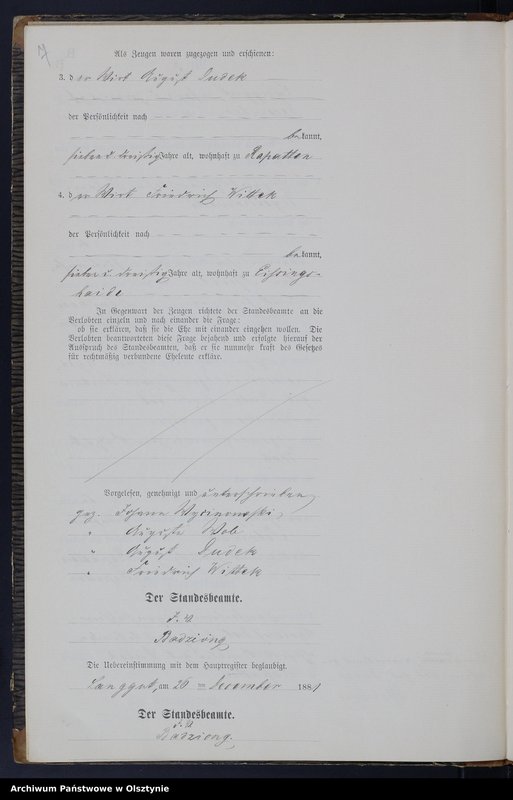 Als Zeugen waren zugezogen und erschienen:
3. der Wirt August Dudek
der Persönlichkeit nach
bekannt,
sieben u. dreißig Jahre alt, wohnhaft zu Rapatten
4. der Wirt Friedrich Wittek
der Persönlichkeit nach
bekannt,
sieben u. dreißig Jahre alt, wohnhaft zu
haide
In Gegenwart der Zeugen richtete der Standesbeamte an die
Verlobten einzeln und nach einander die Frage:
ob sie erklären, daß sie die Ehe mit einander eingehen wollen. Die
Verlobten beantworteten diese Frage bejahend und erfolgte hierauf der
Ausspruch des Standesbeamten, daß er sie nunmehr kraft des Gesetzes
für rechtmäßig verbundene Eheleute erkläre.
Vorgelesen, genehmigt und unterschrieben
gez. Johann
" Auguste
" August Dudek
" Friedrich Wittek
Der Standesbeamte.
J. V.
Badziong
Die Uebereinstimmung mit dem Hauptregister beglaubigt.
Langgut, am 26 ten December 1881
Der Standesbeamte.
J. V.
Badziong.
Archiwum Państwowe w Olsztynie